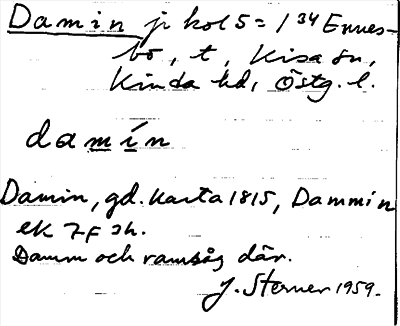 Damin jr kol 5 = 1 34 Ennes-
bo, t, Kisa sn,
Kinda hd, Östg. l.
damín
Damin, gd. karta 1815, Dammin
ek 7F 3h.
Damm och ramsåg där.
J. Sterner 1959.